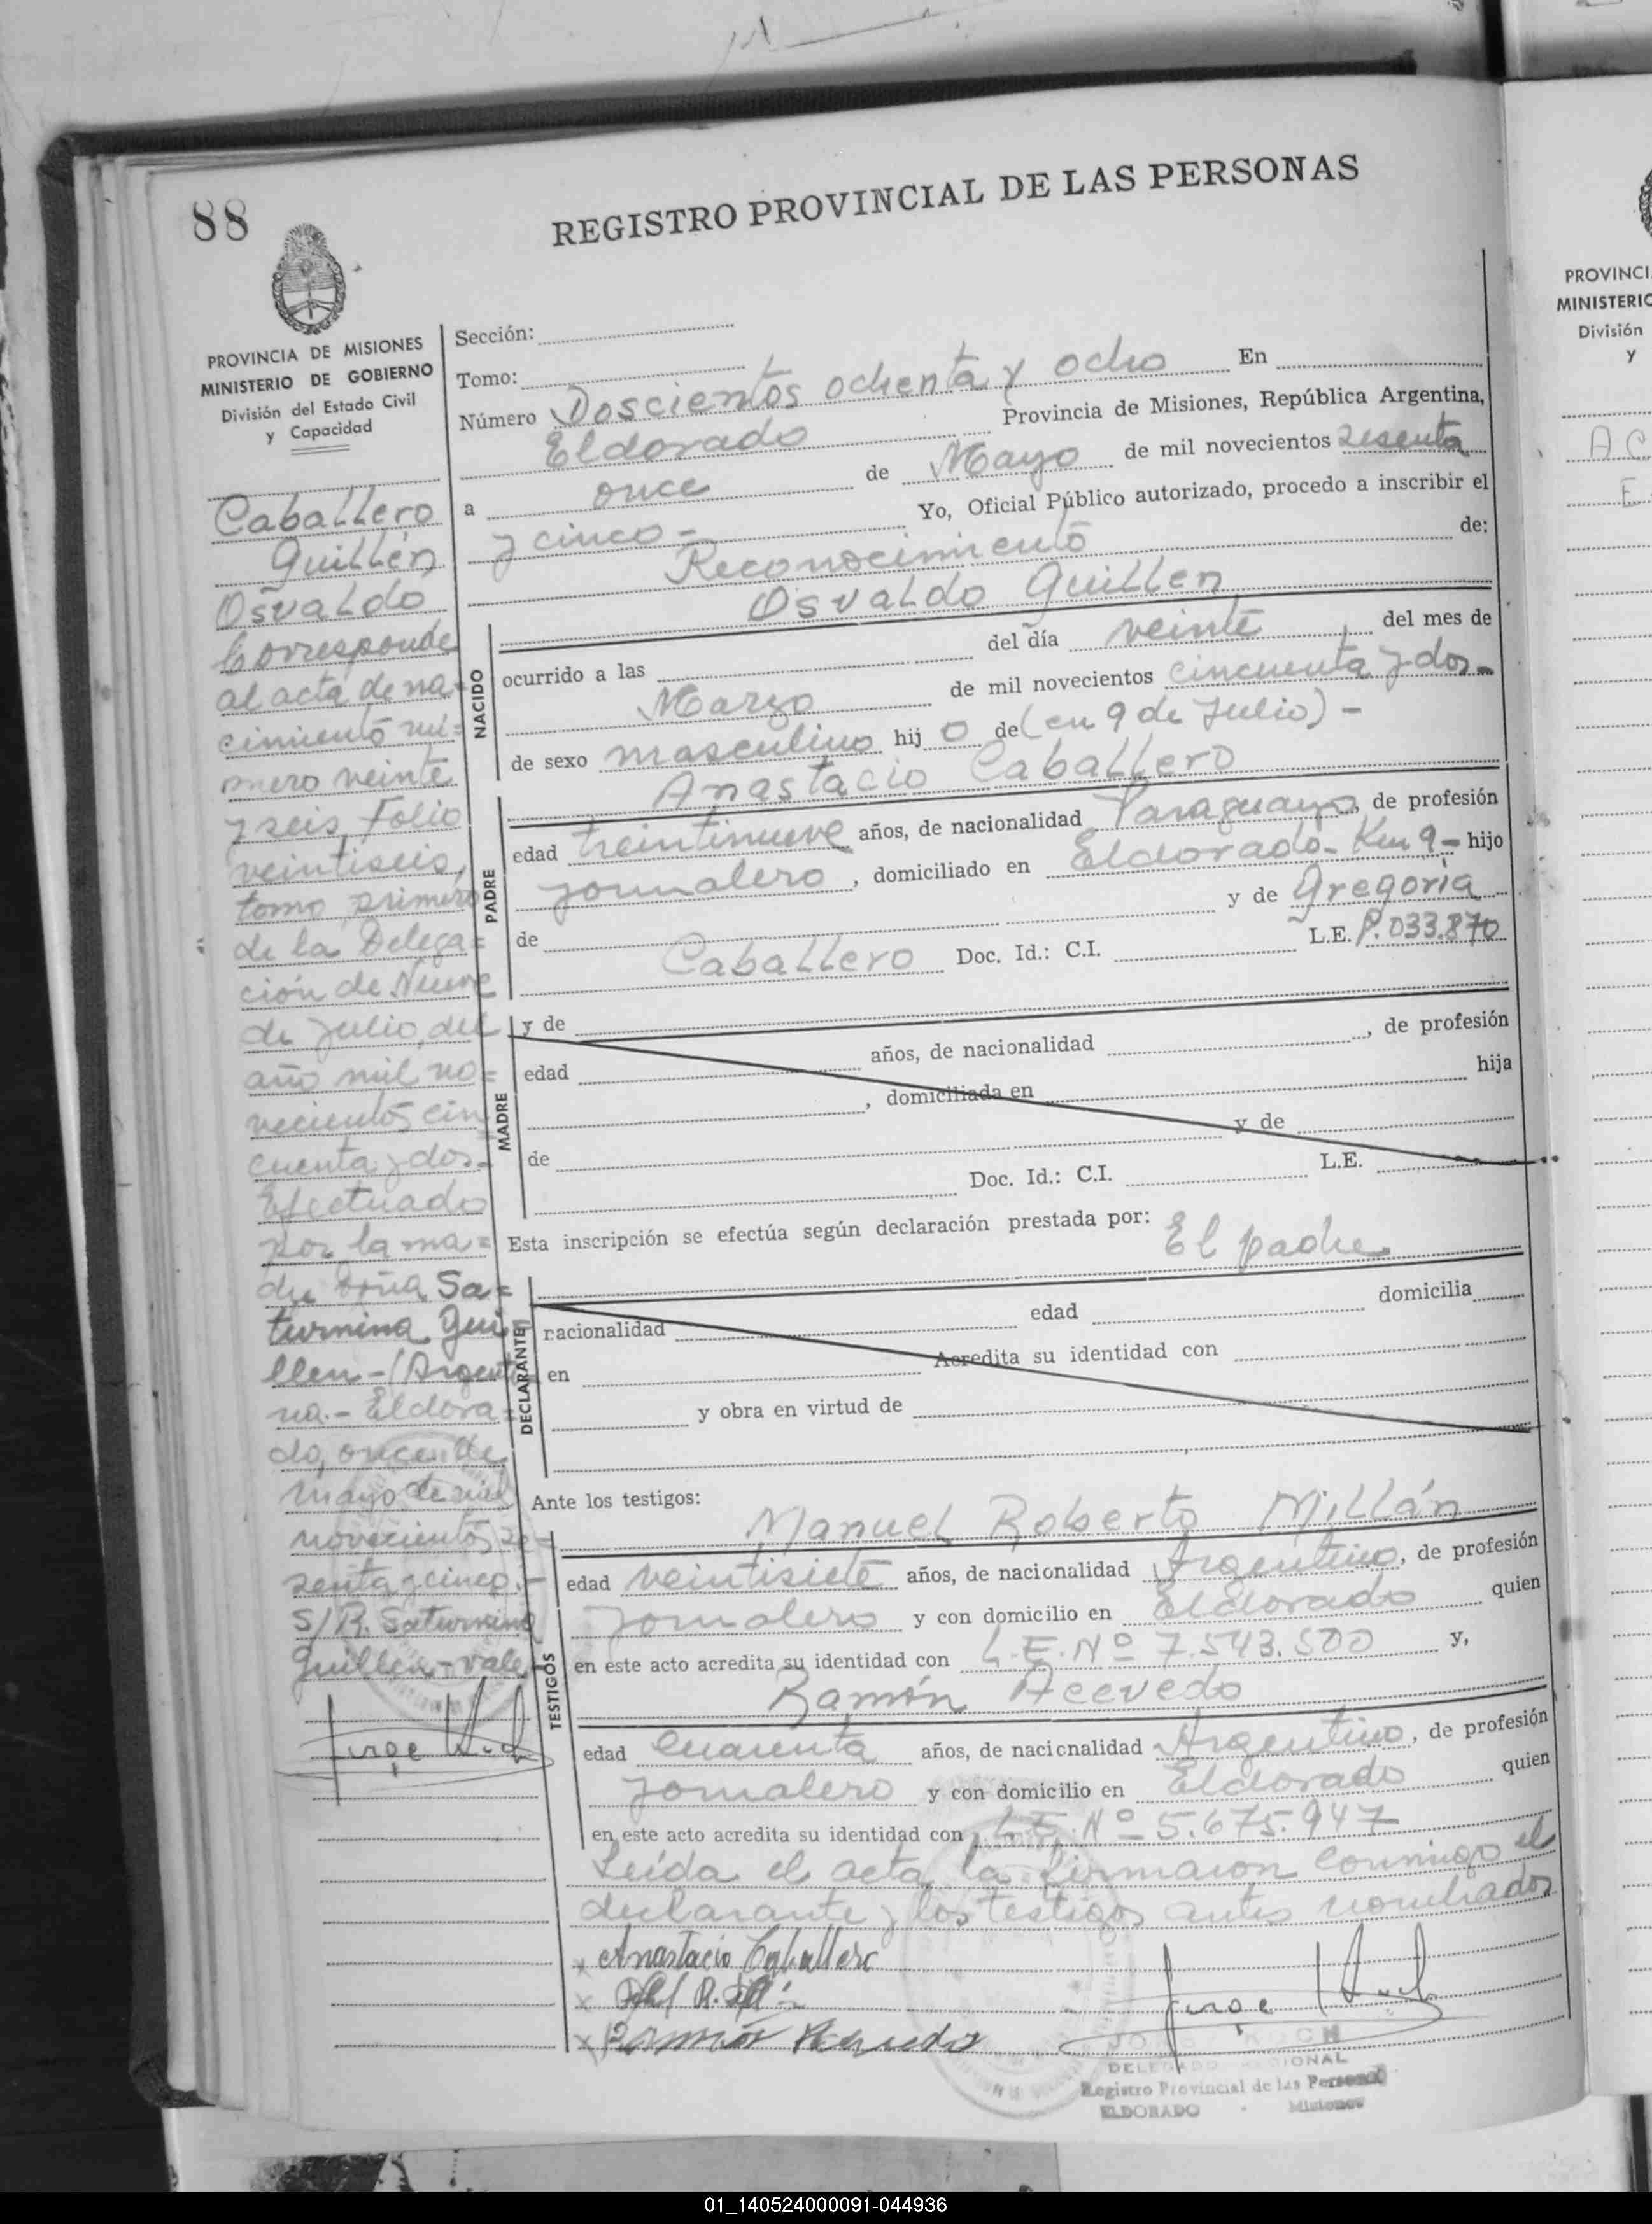 88
REGISTRO PROVINCIAL DE LAS PERSONAS
PROVINCIA DE MISIONES
MINISTERIO DE GOBIERNO
División del Estado Civil
y Capacidad
Caballero
Guillén
Osvaldo
Corresponde
al acta de na=
cimiento nú=
mero veinte
y seis, Folio
veintiseis,
tomo primero
de la Delega=
ción de Nueve
de Julio, del
año mil no=
vecientos cin
cuenta y dos.-
Efectuado
por la ma=
dre doña Sa=
turnina Gui
llen - (Argenti
na.- Eldora=
do, once de
mayo de mil
novecientos se=
senta y cinco.-
S/R. Saturnina
Guillén - vale
Sección:
Tomo:
Número Doscientos ochenta y ocho En
Eldorado Provincia de Misiones, República Argentina,
a once de Mayo de mil novecientos sesenta
y cinco - Yo, Oficial Público autorizado, procedo a inscribir el
Reconocimiento de:
Osvaldo Guillen
NACIDO
ocurrido a las del día veinte del mes de
Marzo de mil novecientos cincuenta y dos.-
de sexo masculino hij o de (en 9 de Julio) -
Anastacio Caballero
PADRE
edad treintinueve años, de nacionalidad Paraguayo, de profesión
jornalero, domiciliado en Eldorado - Km 9 - hijo
de y de Gregoria
Caballero Doc. Id.: C.I. L.E. P. 033.870
MADRE
y de
edad años, de nacionalidad , de profesión
, domiciliada en hija
de y de
Doc. Id.: C.I. L.E.
Esta inscripción se efectúa según declaración prestada por: El padre
DECLARANTE
nacionalidad edad domicilia
en Acredita su identidad con
y obra en virtud de
Ante los testigos:
Manuel Roberto Millán
TESTIGOS
edad veintisiete años, de nacionalidad Argentino, de profesión
Jornalero y con domicilio en Eldorado quien
en este acto acredita su identidad con L.E. Nº 7.543.500 y,
Ramón Acevedo
edad Cuarenta años, de nacionalidad Argentino, de profesión
Jornalero y con domicilio en Eldorado quien
en este acto acredita su identidad con L.E. Nº 5.675.947
Leída el acta la firmaron conmigo el
declarante y los testigos antes nombrados
x Anastacio Caballero
x
x Ramón Acevedo
DELEGADO REGIONAL
Registro Provincial de las Personas
ELDORADO - Misiones
PROVINCI
MINISTERIO
División
y
01_140524000091-044936